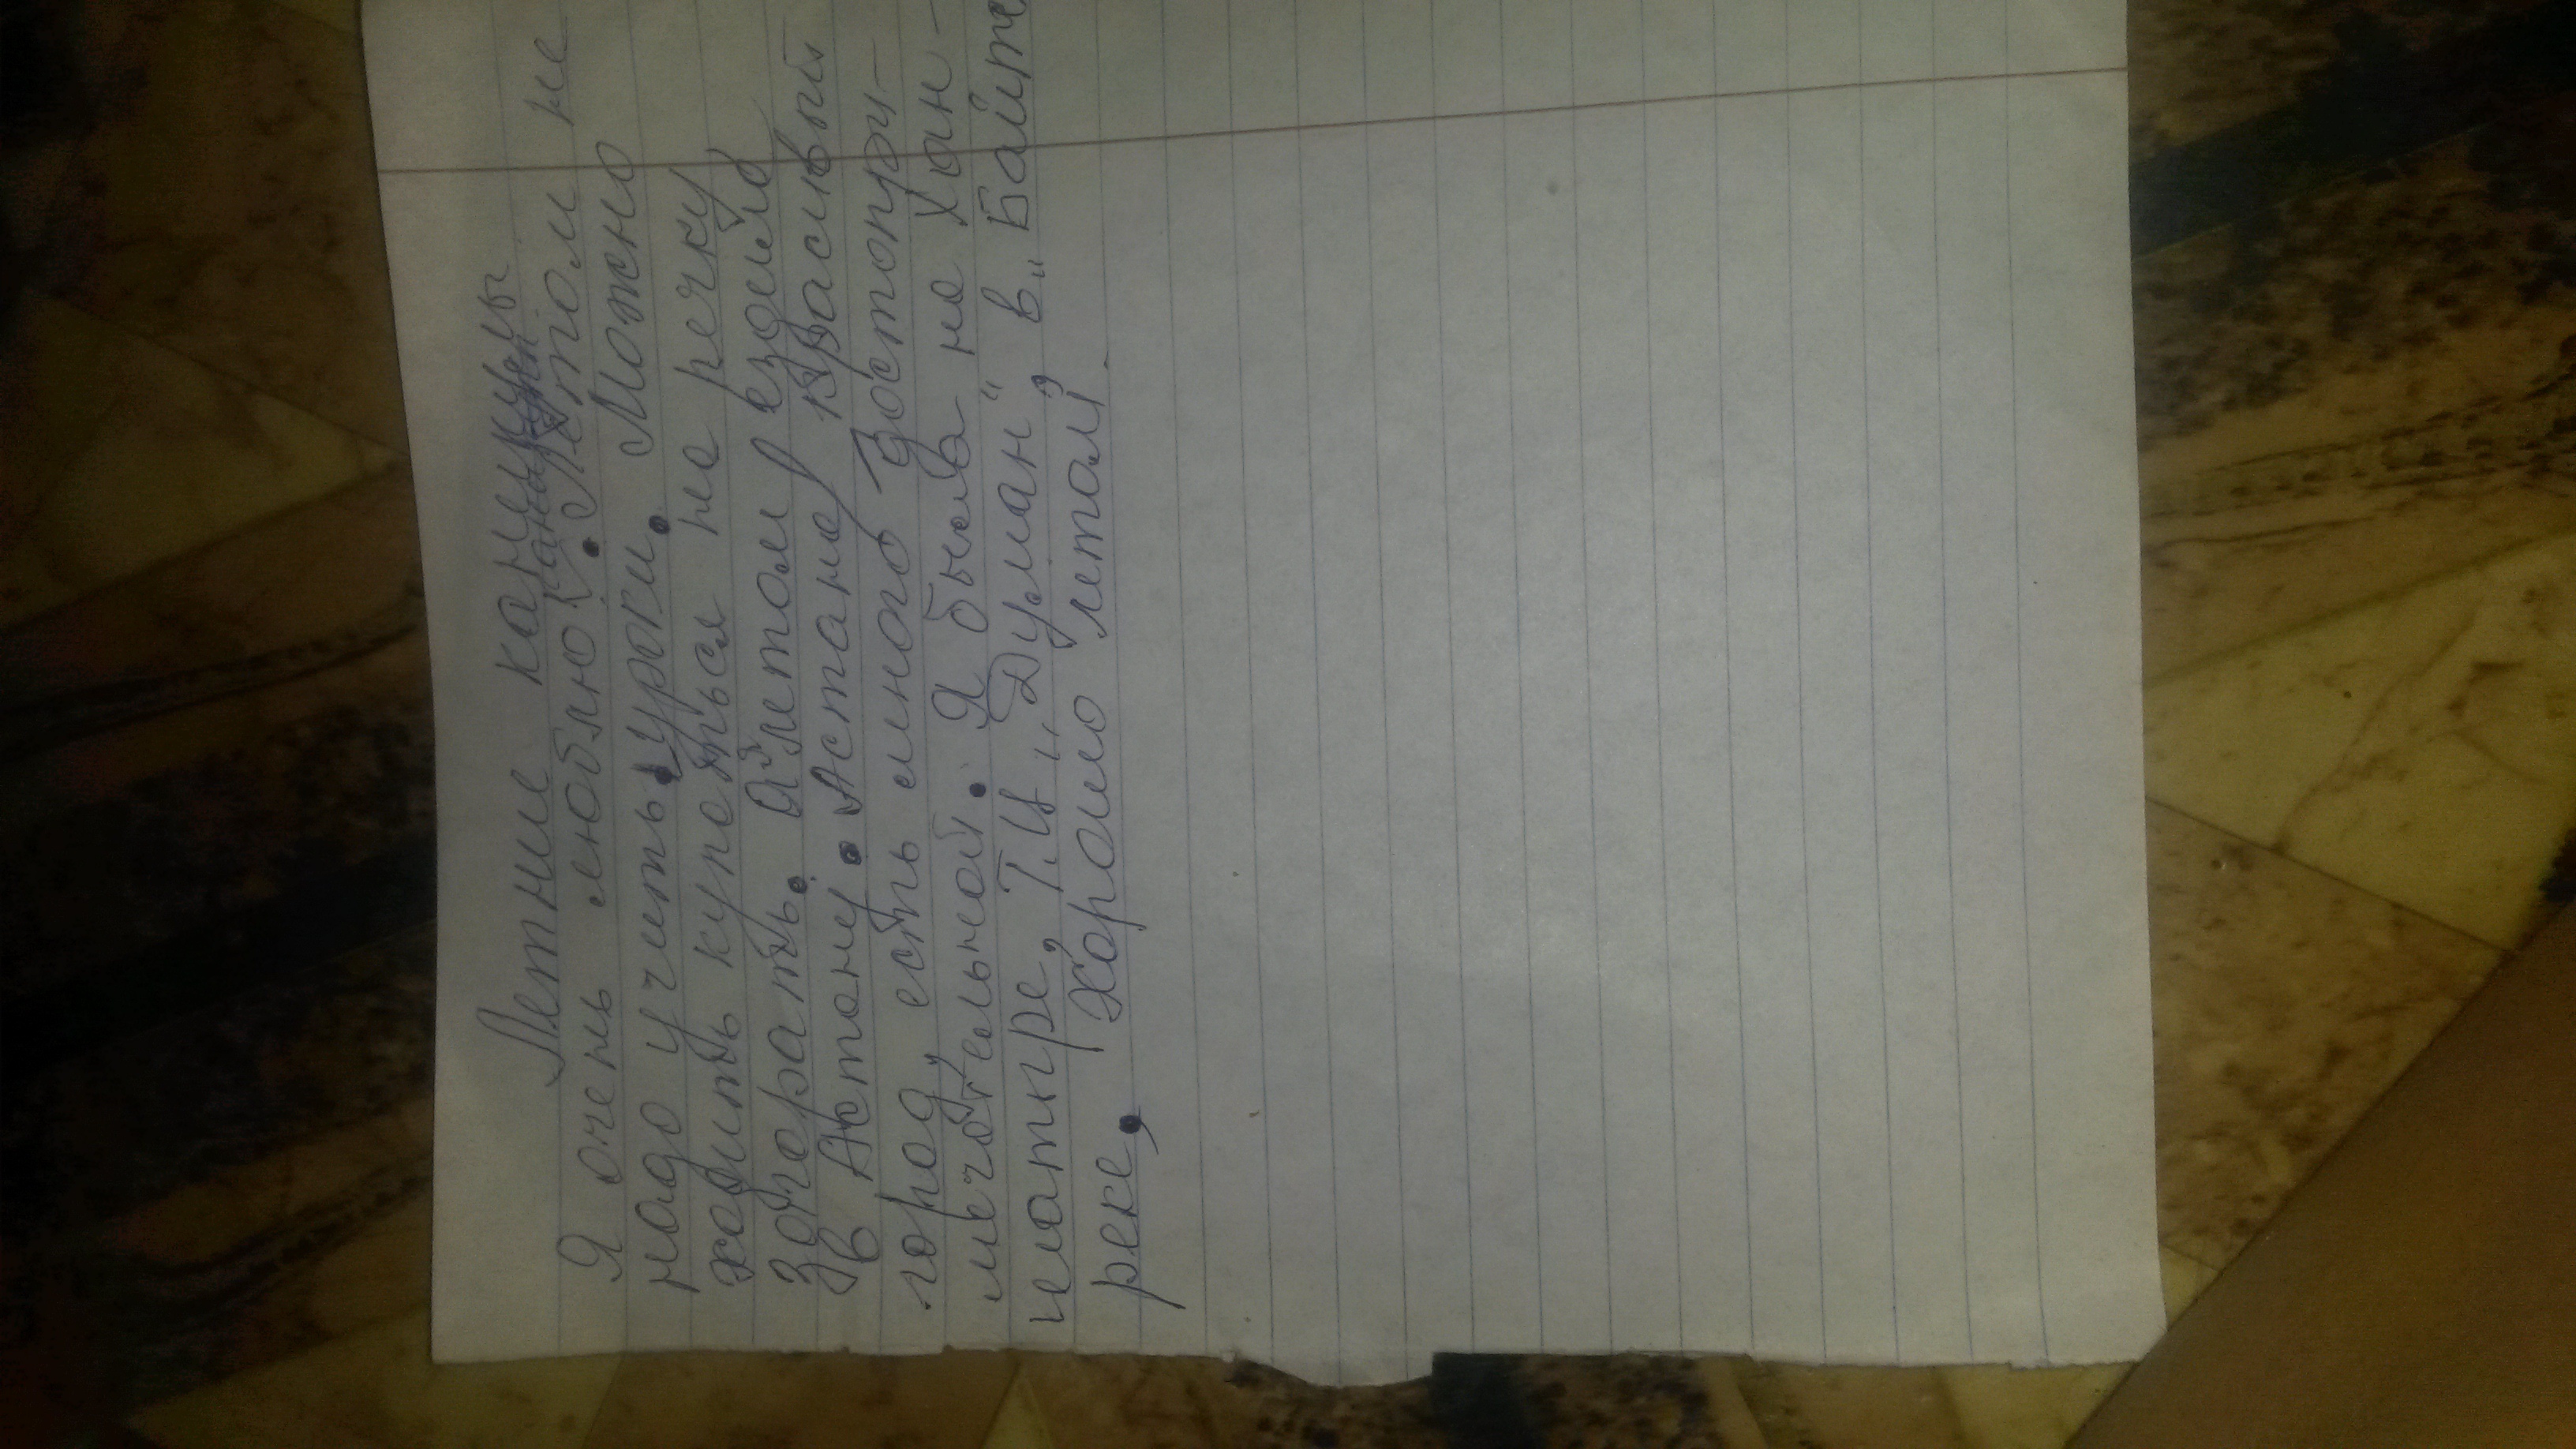 Летние каникулы
Я очень люблю каникулы. Летом не
надо учить уроки. Можно
ходить купаться на речку
загорать. Я летом ездила
в Астану. Астана красивый
город, есть много достопри-
мечательной. Я была на Хан-
шатыре, Т.Ц „Думан", в „Байте
реке. Хорошо летом.